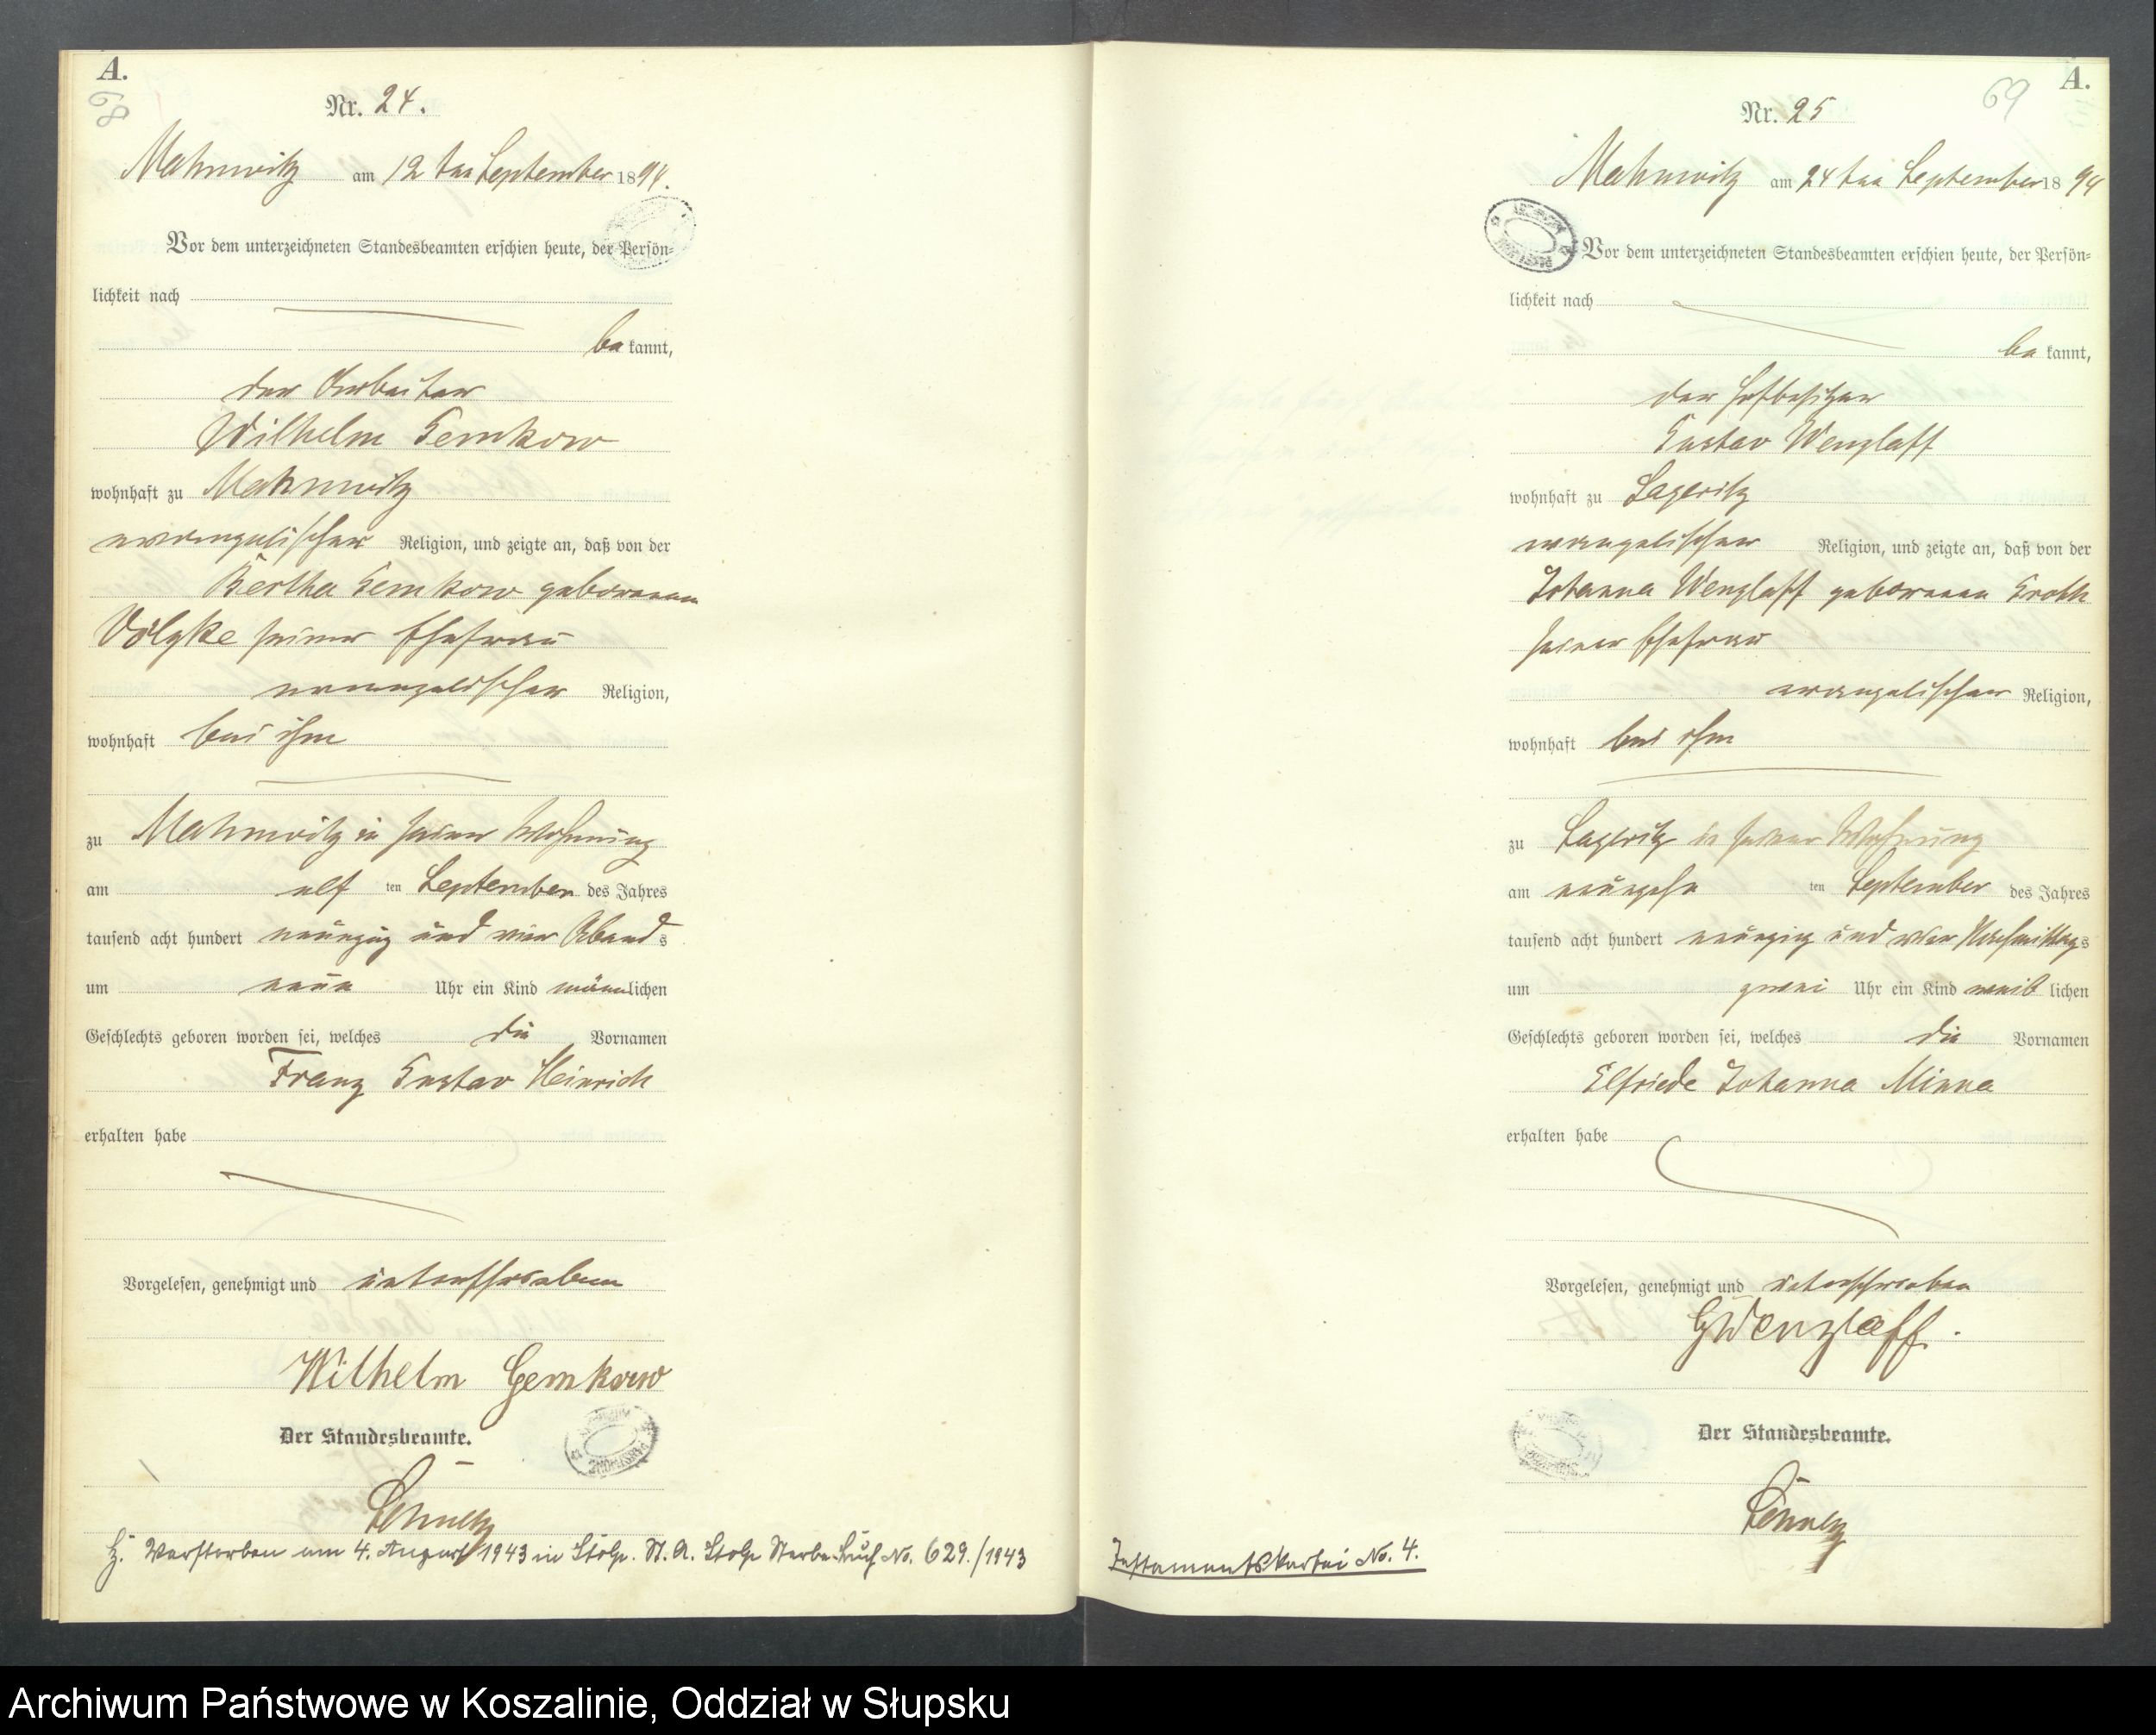 A.
68
Nr. 24.
Mahnwitz am 12ten September 1894.
Vor dem unterzeichneten Standesbeamten erschien heute, der Persön-
lichkeit nach
be kannt,
der Arbeiter
Wilhelm Gemkow
wohnhaft zu Mahnwitz
evangelischer Religion, und zeigte an, daß von der
Bertha Gemkow geborenen
Völzke seiner Ehefrau
evangelischer Religion,
wohnhaft bei ihm
zu Mahnwitz in seiner Wohnung
am elf ten September des Jahres
tausend acht hundert neunzig und vier Abends
um neun Uhr ein Kind männlichen
Geschlechts geboren worden sei, welches die Vornamen
Franz Gustav Heinrich
erhalten habe
Vorgelesen, genehmigt und unterschrieben
Wilhelm Gemkow
Der Standesbeamte.
H. Verstorben am 4. August 1943 in Stolp. St. A. Stolp Sterbebuch No. 629./1943
A.
69
Nr. 25
Mahnwitz am 24ten September 1894
Vor dem unterzeichneten Standesbeamten erschien heute, der Persön-
lichkeit nach
be kannt,
der Hofbesitzer
Gustav Wenzlaff
wohnhaft zu Sageritz
evangelischer Religion, und zeigte an, daß von der
Johanna Wenzlaff geborenen Groth
seiner Ehefrau
evangelischer Religion,
wohnhaft bei ihm
zu Sageritz in seiner Wohnung
am neunzehn ten September des Jahres
tausend acht hundert neunzig und vier Nachmittags
um zwei Uhr ein Kind weib lichen
Geschlechts geboren worden sei, welches die Vornamen
Elfriede Johanna Minna
erhalten habe
Vorgelesen, genehmigt und unterschrieben
GWenzlaff.
Der Standesbeamte.
Testamentskartei No. 4.
Archiwum Państwowe w Koszalinie, Oddział w Słupsku